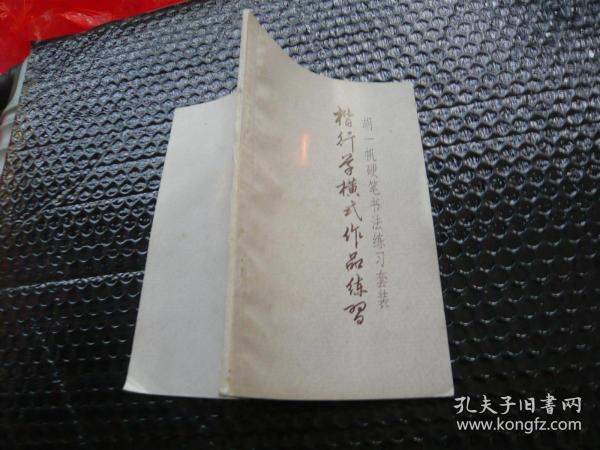 胡一帆硬笔书法练习套装
楷行草横式作品练習
孔夫子旧书网
www.kongfz.com